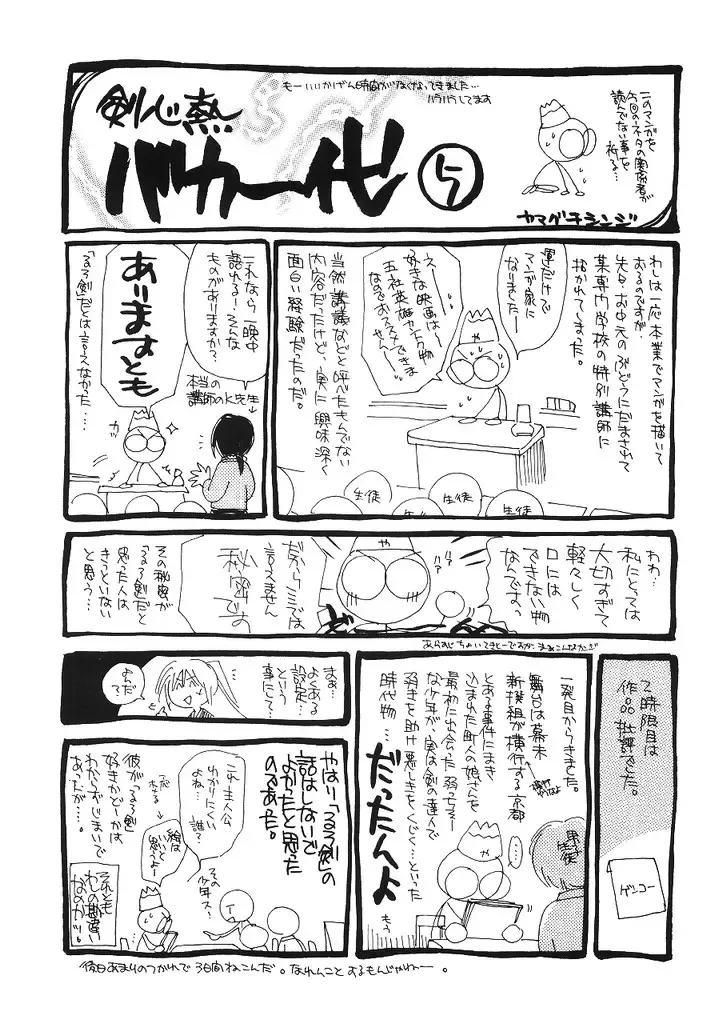 もーいいかげん時間がなくなってきました…
バラバラしてます
剣心熱
バカ一代
5
このマンガを
今回のネタの関係者が
読んでない事を
祈る…
ヤマグチシンジ
わしは一応本業でマンガを描いて
おるのですが、
先日、お中元のぶどうにだまされて
某専門学校の特別講師に
招かれてしまった。
運だけで
マンガ家に
なりましたー
えー
好きな映画は〜
五社英雄カントク物
なのでおススメできま
せんー
や
当然講議などと呼べたもんでない
内容だったけど、実に興味深く
面白い経験だったのだ。
生徒
生徒
生徒
これなら一晩中
語れるー！そんな
ものがありますか？
本当の
講師のK先生
ありますとも
ガッ
「るろ剣」だとは言えなかった…
わわ…
私にとっては
大切すぎて
軽々しく
口には
できない物
なんです。
や
だからここでは
言えません
秘密です
その秘密が
「るろ剣」だと
思った人は
きっといない
と思う…
あらすじちょいてきとーですが、まぁこんなカンジ
2時限目は
作品批評でした。
ゲンコー
一発目からきました。
舞台は幕末
新撰組が横行する京都
とある事件にまき
込まれた町人の娘さんを
最初に出会った弱っちそー
な少年が、実は剣の達人で
弱きを助け悪しきをくじく…といった
時代物…だったんよ
男子
生徒
……
や
もう
まぁ…
よくある
設定…
という
事にして…
よろだ
やはり「るろ剣」の
話はしないで
よかったと思った
のであった。
これ主人公
わかりにくい
よね。
誰？
その
少年ス！
絵は
いいと
思うよー
彼が「るろ剣」
好きかどーかは
わからずじまいで
あったが…。
それとも
わしの勘違い
なのかっ。
後日あまりのつかれで3日間ねこんだ。なれんことするもんじゃねー。